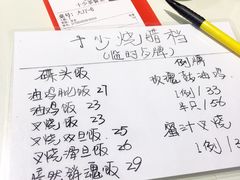 十少烧腊档
(临时餐牌)
碟头饭
油鸡髀饭 27
油鸡饭 23
叉烧饭 23
叉烧双旦饭 25
叉烧滑旦饭 26
黯然销魂饭 29
例牌
玫瑰豉油鸡
1例/33
半只/56
蜜汁叉烧
1例/3